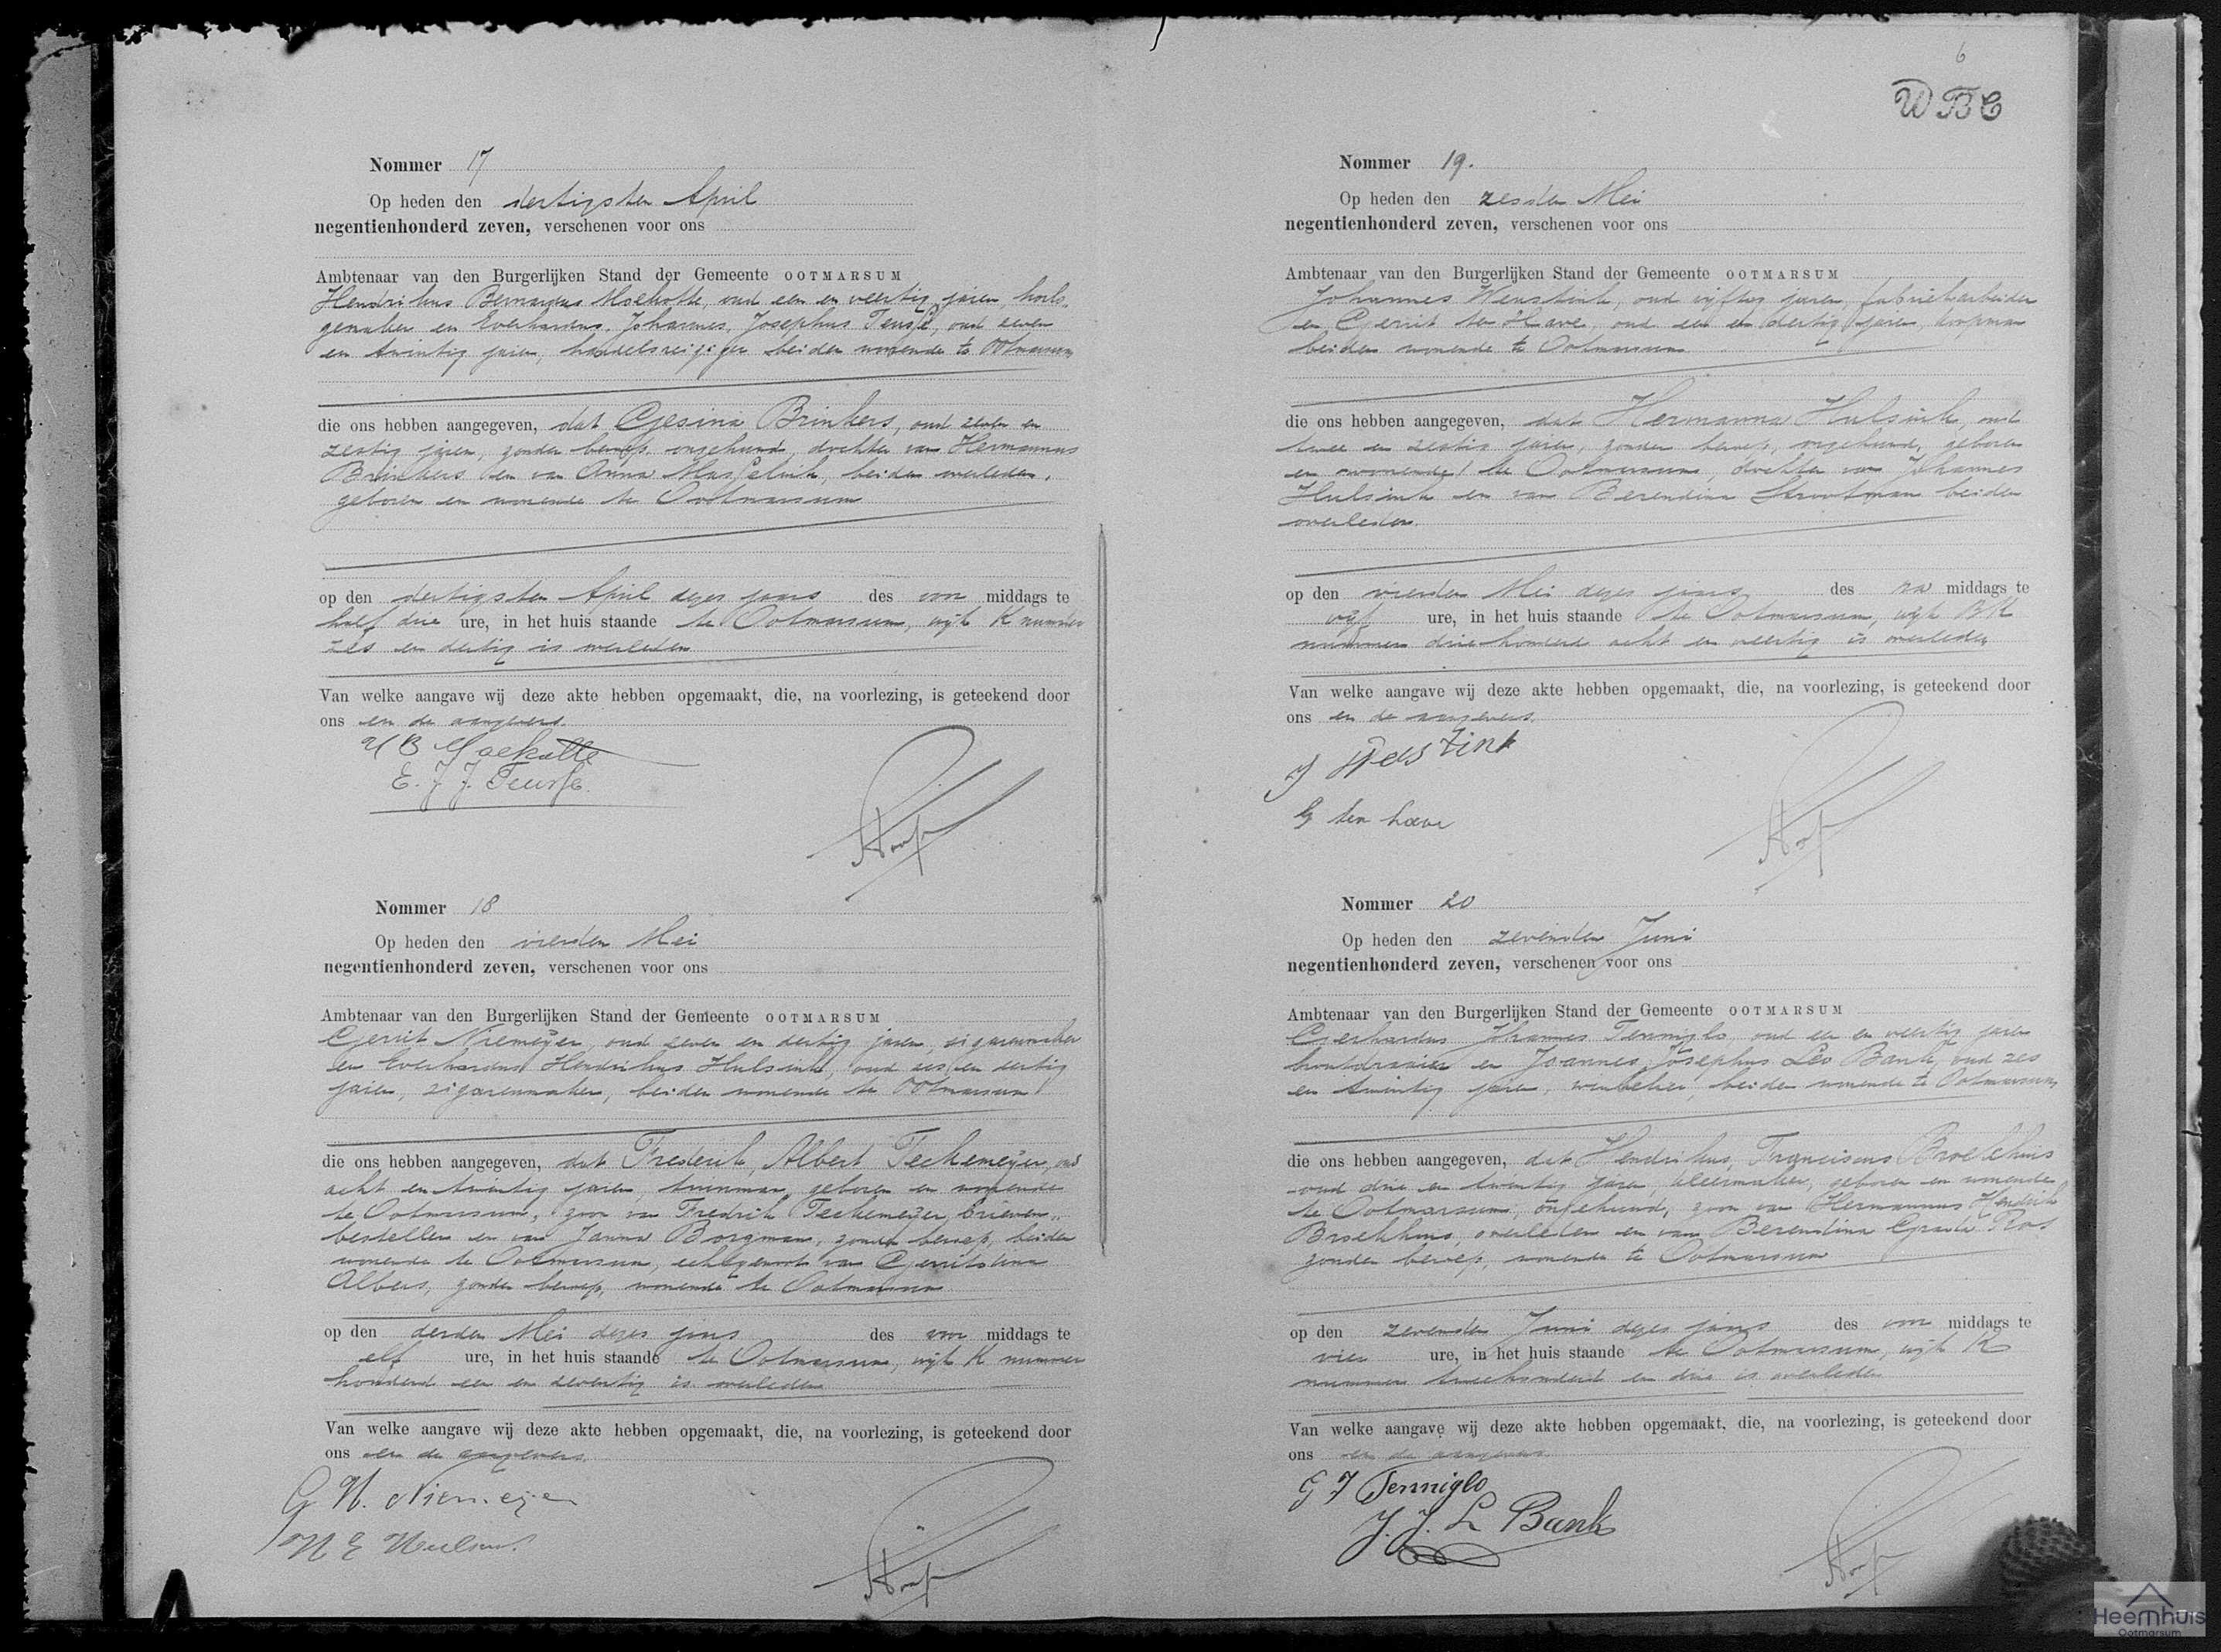 Nommer 17
Op heden den dertigsten April
negentienhonderd zeven, verschenen voor ons
Ambtenaar van den Burgerlijken Stand der Gemeente OOTMARSUM
Hendrikus Bernardus Moekotte, oud een en veertig jaren, horlo-
gemaker en Everhardus, Johannes, Josephus Teusse, oud zeven
en twintig jaren, handelsreiziger beiden wonende te Ootmarsum
die ons hebben aangegeven, dat Gesina Brinkers, oud zeven en
zestig jaren, zonder beroep, ongehuwd, dochter van Hermannus
Brinkers en van Anna Masselink, beiden overleden,
geboren en wonende te Ootmarsum
op den dertigsten April dezes jaars des voor middags te
half drie ure, in het huis staande te Ootmarsum, wijk K nummer
zes en dertig is overleden
Van welke aangave wij deze akte hebben opgemaakt, die, na voorlezing, is geteekend door
ons en de aangevers.
H B Moekotte
E. J. J. Teusse.
Nommer 18
Op heden den vierden Mei
negentienhonderd zeven, verschenen voor ons
Ambtenaar van den Burgerlijken Stand der Gemeente OOTMARSUM
Gerrit Niemeijer, oud zeven en dertig jaren, sigarenmaker
en Everhardus Hendrikus Hulsink, oud zes en dertig
jaren, sigarenmaker, beiden wonende te Ootmarsum
die ons hebben aangegeven, dat Frederik, Albert Teckemeijer, oud
acht en twintig jaren, tuinman, geboren en wonende
te Ootmarsum, zoon van Fredrik Teckemeijer, brieven-
besteller en van Janna Borgman, zonder beroep, beiden
wonende te Ootmarsum, echtgenoot van Gerritdina
Albers, zonder beroep, wonende te Ootmarsum
op den derden Mei dezes jaars des voor middags te
elf ure, in het huis staande te Ootmarsum, wijk K nummer
honderd een en zeventig is overleden
Van welke aangave wij deze akte hebben opgemaakt, die, na voorlezing, is geteekend door
ons en de aangevers.
G H. Niemeijer
H E Hulsink
6
WBC
Nommer 19.
Op heden den zesden Mei
negentienhonderd zeven, verschenen voor ons
Ambtenaar van den Burgerlijken Stand der Gemeente OOTMARSUM
Johannes Wenstink, oud vijftig jaren, fabriekarbeider
en Gerrit ten Have, oud een en dertig jaren, koopman
beiden wonende te Ootmarsum
die ons hebben aangegeven, dat Hermanna Hulsink, oud
twee en zestig jaren, zonder beroep, ongehuwd, geboren
en wonende te Ootmarsum, dochter van Johannes
Hulsink en van Berendina Strootman beiden
overleden.
op den vierden Mei dezes jaars des na middags te
vijf ure, in het huis staande te Ootmarsum, wijk BK
nummer driehonderd acht en veertig is overleden
Van welke aangave wij deze akte hebben opgemaakt, die, na voorlezing, is geteekend door
ons en de aangevers.
G ten have
Nommer 20
Op heden den zevenden Juni
negentienhonderd zeven, verschenen voor ons
Ambtenaar van den Burgerlijken Stand der Gemeente OOTMARSUM
Gerhardus Johannes Tenniglo, oud een en veertig jaren
houtdraaier en Joannes, Josephus Leo Bank, oud zes
en twintig jaren, beiden wonende te Ootmarsum
die ons hebben aangegeven, dat Hendrikus, Franciscus Broekhuis
oud drie en twintig jaren, kleermaker, geboren en wonende
te Ootmarsum, ongehuwd, zoon van Hermannus Hendrik
Broekhuis, overleden en van Berendina Grada Ros
zonder beroep, wonende te Ootmarsum
op den zevenden Juni dezes jaars des voor middags te
vier ure, in het huis staande te Ootmarsum, wijk K
nummer tweehonderd en drie is overleden
Van welke aangave wij deze akte hebben opgemaakt, die, na voorlezing, is geteekend door
ons en de aangevers
G J Tenniglo
J. J. L Bank
Heemhuis
Ootmarsum